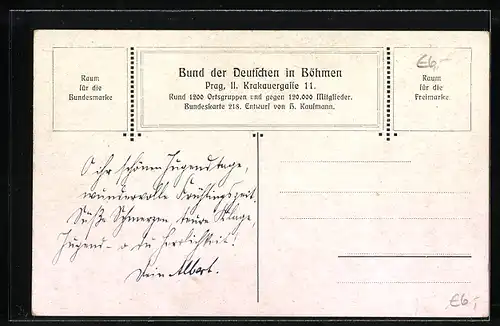 Raum
für die
Bundesmarke
Bund der Deutschen in Böhmen
Prag, II. Krakauergasse 11.
Rund 1200 Ortsgruppen und gegen 120.000 Mitglieder.
Bundeskarte 218. Entwurf von H. Kaufmann.
E6.-
Raum
für die
Freimarke.
O ihr schönen Jugendtage,
wundervolle Frühlingszeit,
Süße Schmerzen, teure Klage,
Jugend - o du Herrlichkeit!
Dein Albert.
E6.-